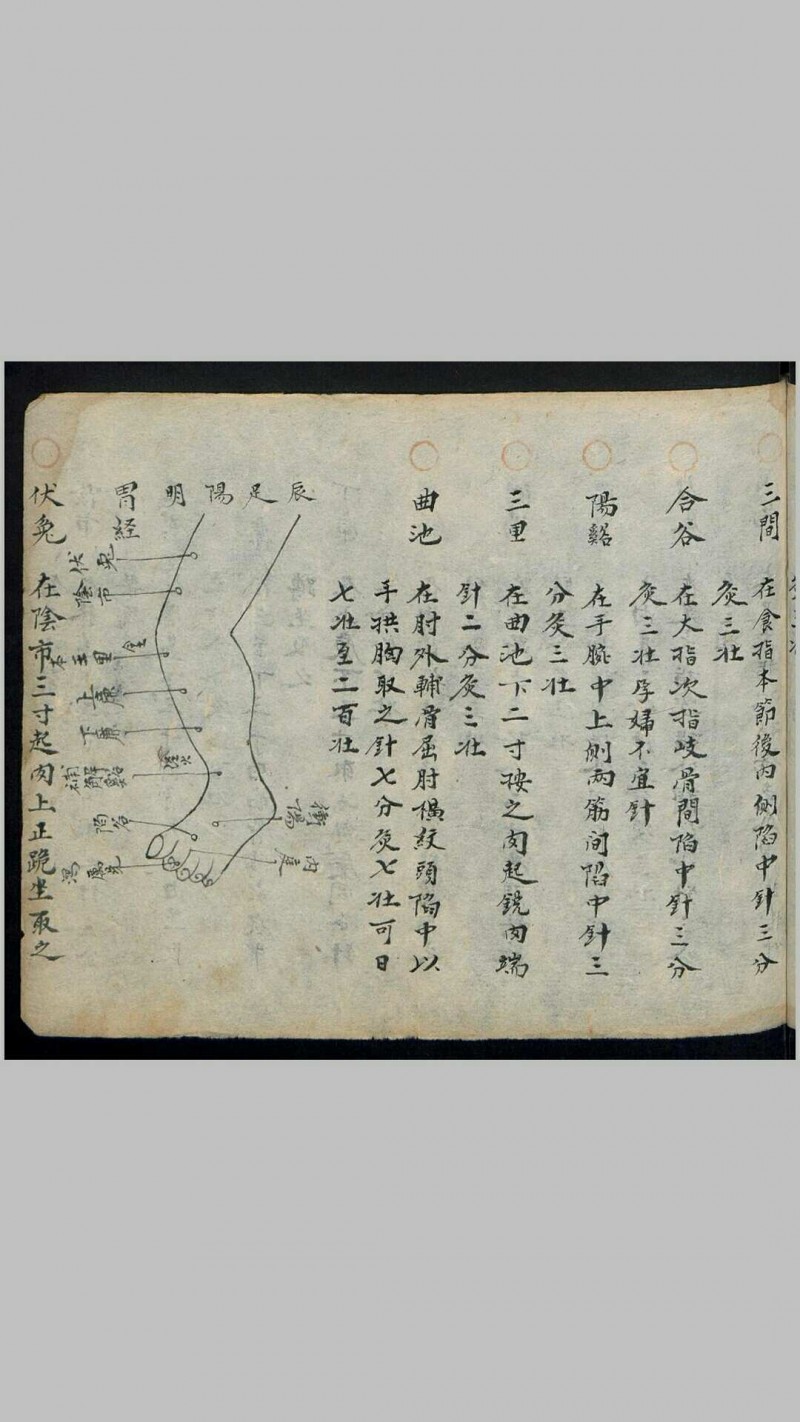 三間
在食指本節後内側陷中針三分
灸三壮
合谷
在大指次指岐骨間陷中針三分
灸三壮孕婦不宜針
陽谿
在手腕中上側両筋间陷中針三
分灸三壮
三里
在曲池下二寸按之肉起鋭肉端
針二分灸三壮
曲池
在肘外輔骨屈肘橫紋頭陷中以
手拱胸取之針七分灸七壮可日
七壮至二百壮
辰足陽明
胃経
伏兔
陰市
三里
上廉
下廉
解谿
衝陽
陷谷
内庭
伏兔
在陰市三寸起肉上正跪坐取之